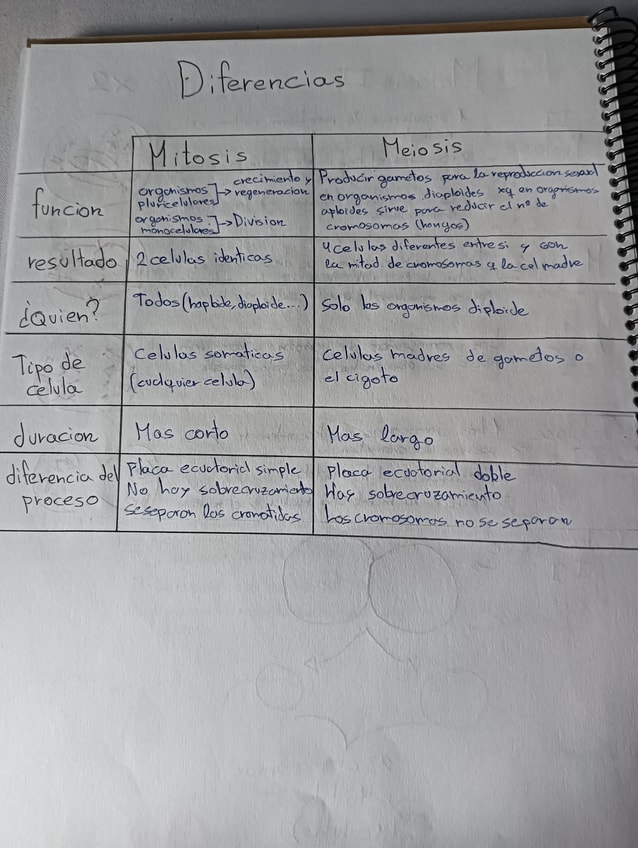 Diferencias
Mitosis
Meiosis
funcion
organismos pluricelulares → crecimiento y regeneracion
organismos monocelulares → Division
Producir gametos para la reproduccion sexual
en organismos diaploides xq en organismos
aploides sirve para reducir el nº de
cromosomas (hongos)
resultado
2 celulas identicas
4 celulas diferentes entre si y con
la mitad de cromosomas q la cel madre
¿Quien?
Todos (haploide, diaploide...)
Solo los organismos diploide
Tipo de
celula
Celulas somaticas
(cualquier celula)
Celulas madres de gametos o
el cigoto
duracion
Mas corto
Mas largo
diferencia del
proceso
Placa ecuatorial simple
No hay sobrecruzamiento
Se separan las cromatidas
Placa ecuatorial doble
Hay sobrecruzamiento
Los cromosomas no se separan